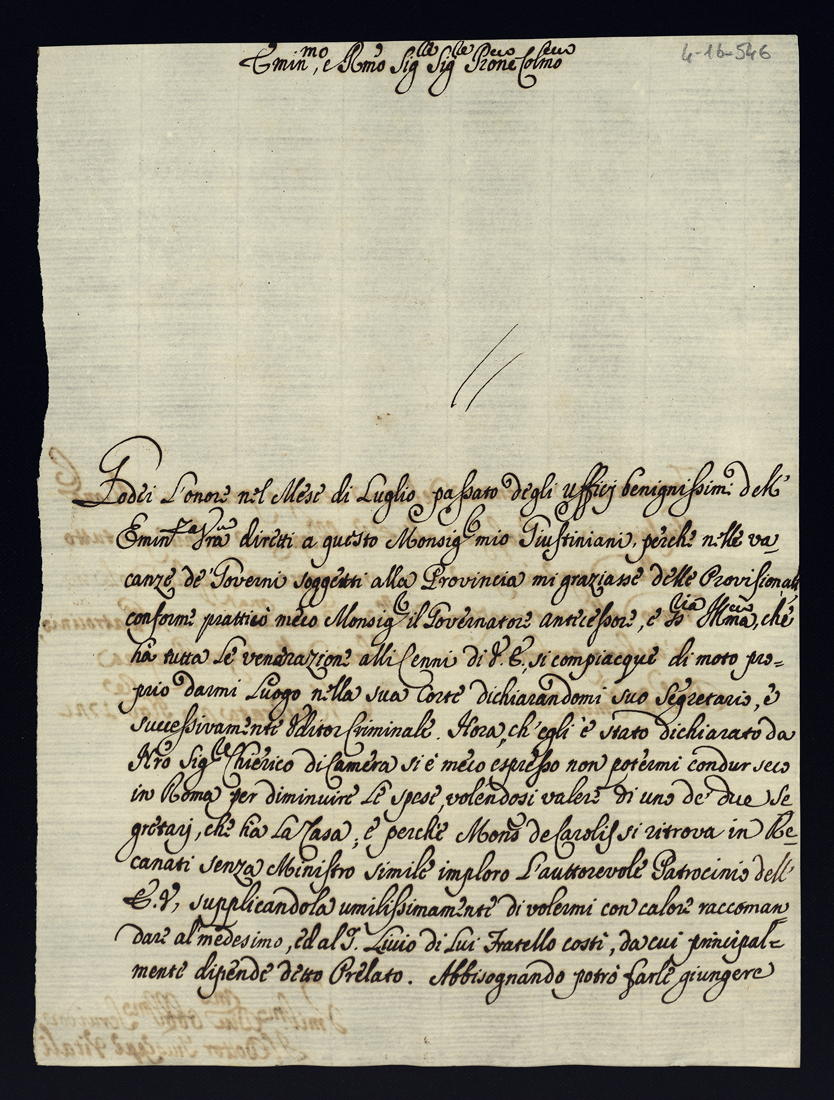 4-16-546
Emin.mo, e Rmo Sig.lle Sig.lle Prone Colmo
Godei L'onore nel Mese di Luglio passato degli Ufficij benignissimi dell'
Emin.za Vra diretti a questo Monsig.r mio Giustiniani, perche nelle va-
canze de' Governi soggetti alla Provincia mi graziasse delle Provisionali
conforme pratticò meco Monsig.r il Governatore antecessore, e Sig.ria Illma, che
hà tutta Le venerazione alli Cenni di V. E., si compiacque di moto pro=
prio darmi Luogo nella sua Corte dichiarandomi suo Segretario, e
successivamente Uditor Criminale. Hora, ch'egli è stato dichiarato da
Nro Sig.re Chierico di Camera si è meco espresso non potermi condur seco
in Roma per diminuire Le spese, volendosi valere di uno de' due Se
gretarj, che hà La Casa; e perche Mons.r de Carolis si ritrova in Re=
canati senza Ministro simile imploro L'auttorevole Patrocinio dell'
E.V, supplicandola umilissimamente di volermi con calore raccoman=
dare al medesimo, ed al S. Livio di Lui Fratello costì, da cui principal=
mente dipende detto Prelato. Abbisognando potrò farle giungere